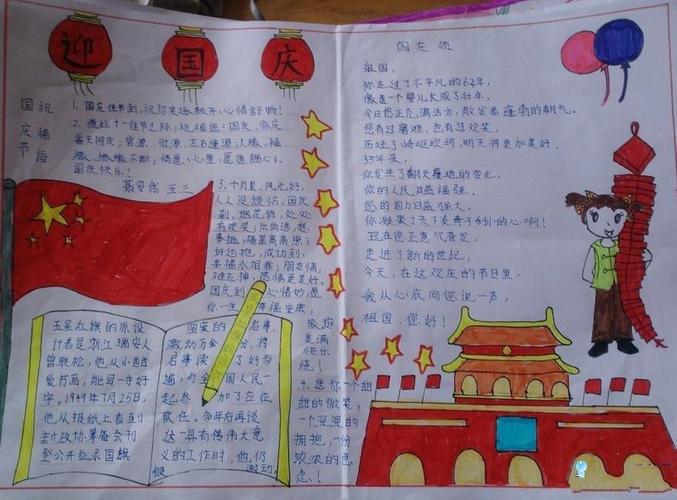 迎国庆
国庆节
祝福语
1. 国庆佳节到,祝你笑逐颜开,心情舒畅!
2. 值此十一佳节之际,祝福您:国庆,家庆,
普天同庆;官源,财源,左右逢源;人缘,福
缘,缘缘不断;情愿,心愿,愿愿随心。
国庆快乐!
五三
3. 十月里,风光好,
人人没烦恼;国庆
到,烟花俏,处处
有欢笑;乐尚逍,想
事抛,福星高高照;
好运抱,成功到,
幸福永相靠;朋友情,
难忘掉,感情更美好。
国庆到,心情妙,愿
你一生幸福安康,
家庭
美满
快乐
绕!
4. 送你一个甜
甜的微笑,
一个深深的
拥抱,一份
浓浓的思
念!
五星红旗的原设
计者是浙江瑞安人
曾联松,他从小酷
爱书画,能写一手好
字。1949年7月25日,
他从报纸上看到
新政协筹备会刊
登公开征求国旗
图案的启事,
激动万分,将
启事读了好
遍,与全国人民一
起参加了应征
队伍。多年后再谈
这一具有伟大意
义的工作时,他仍
很激动。
国庆颂
祖国,
你走过了不平凡的62年,
像是一个婴儿长成了壮年,
今日您正充满活力,散发着蓬勃的朝气。
您有过磨难,也有过欢笑,
历经了崎岖坎坷,明天将更加美好,
你发生了翻天覆地的变化,
你的人民日益福强。
您的国力日益强大,
你凝聚了天下炎黄子孙的心啊!
现在您正意气奋发,
走进了新的世纪,
今天,在这欢庆的节日里,
我从心底向您说一声,
祖国,您好!